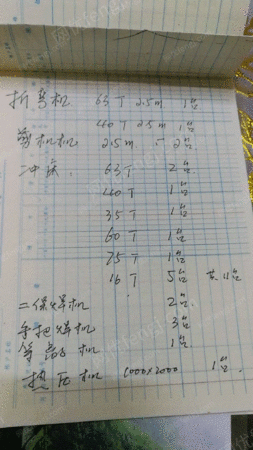 折弯机 63T 2.5m 1台
40T 2.5m 1台
剪板机 2.5m 2台
冲床: 63T 2台
40T 1台
35T 1台
60T 1台
75T 1台
16T 5台 共11台
二保焊机 2台
手把焊机 3台
等离子机 1台
热压机 1000×2000 1台.